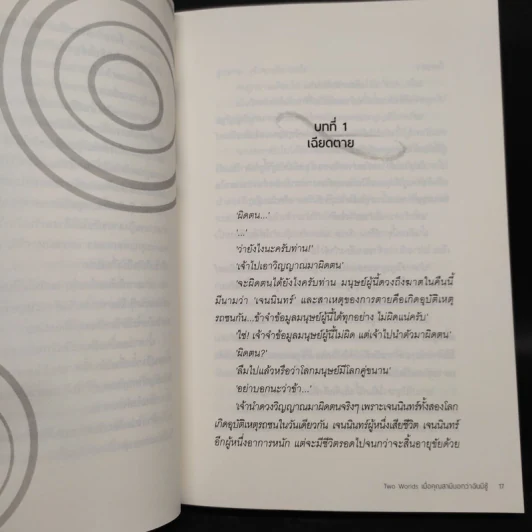 บทที่ 1
เฉียดตาย
'ผิดตน...'
'...'
'ว่ายังไงนะครับท่าน!'
'เจ้าไปเอาวิญญาณมาผิดตน'
'จะผิดตนได้ยังไงครับท่าน มนุษย์ผู้นี้ดวงถึงฆาตในคืนนี้
มีนามว่า 'เจนนินทร์' และสาเหตุของการตายคือเกิดอุบัติเหตุ
รถชนกัน...ข้าจำข้อมูลมนุษย์ผู้นี้ได้ทุกอย่าง ไม่ผิดแน่ครับ'
'ใช่! เจ้าจำข้อมูลมนุษย์ผู้นี้ไม่ผิด แต่เจ้าไปนำตัวมาผิดตน'
'ผิดตน?'
'ลืมไปแล้วหรือว่าโลกมนุษย์มีโลกคู่ขนาน'
'อย่าบอกนะว่าข้า...'
'เจ้านำดวงวิญญาณมาผิดตนจริงๆ เพราะเจนนินทร์ทั้งสองโลก
เกิดอุบัติเหตุรถชนในวันเดียวกัน เจนนินทร์ผู้หนึ่งเสียชีวิต เจนนินทร์
อีกผู้หนึ่งอาการหนัก แต่จะมีชีวิตรอดไปจนกว่าจะสิ้นอายุขัยด้วย
Two Worlds เมื่อคุณสามีบอกว่าฉันมีชู้ 17